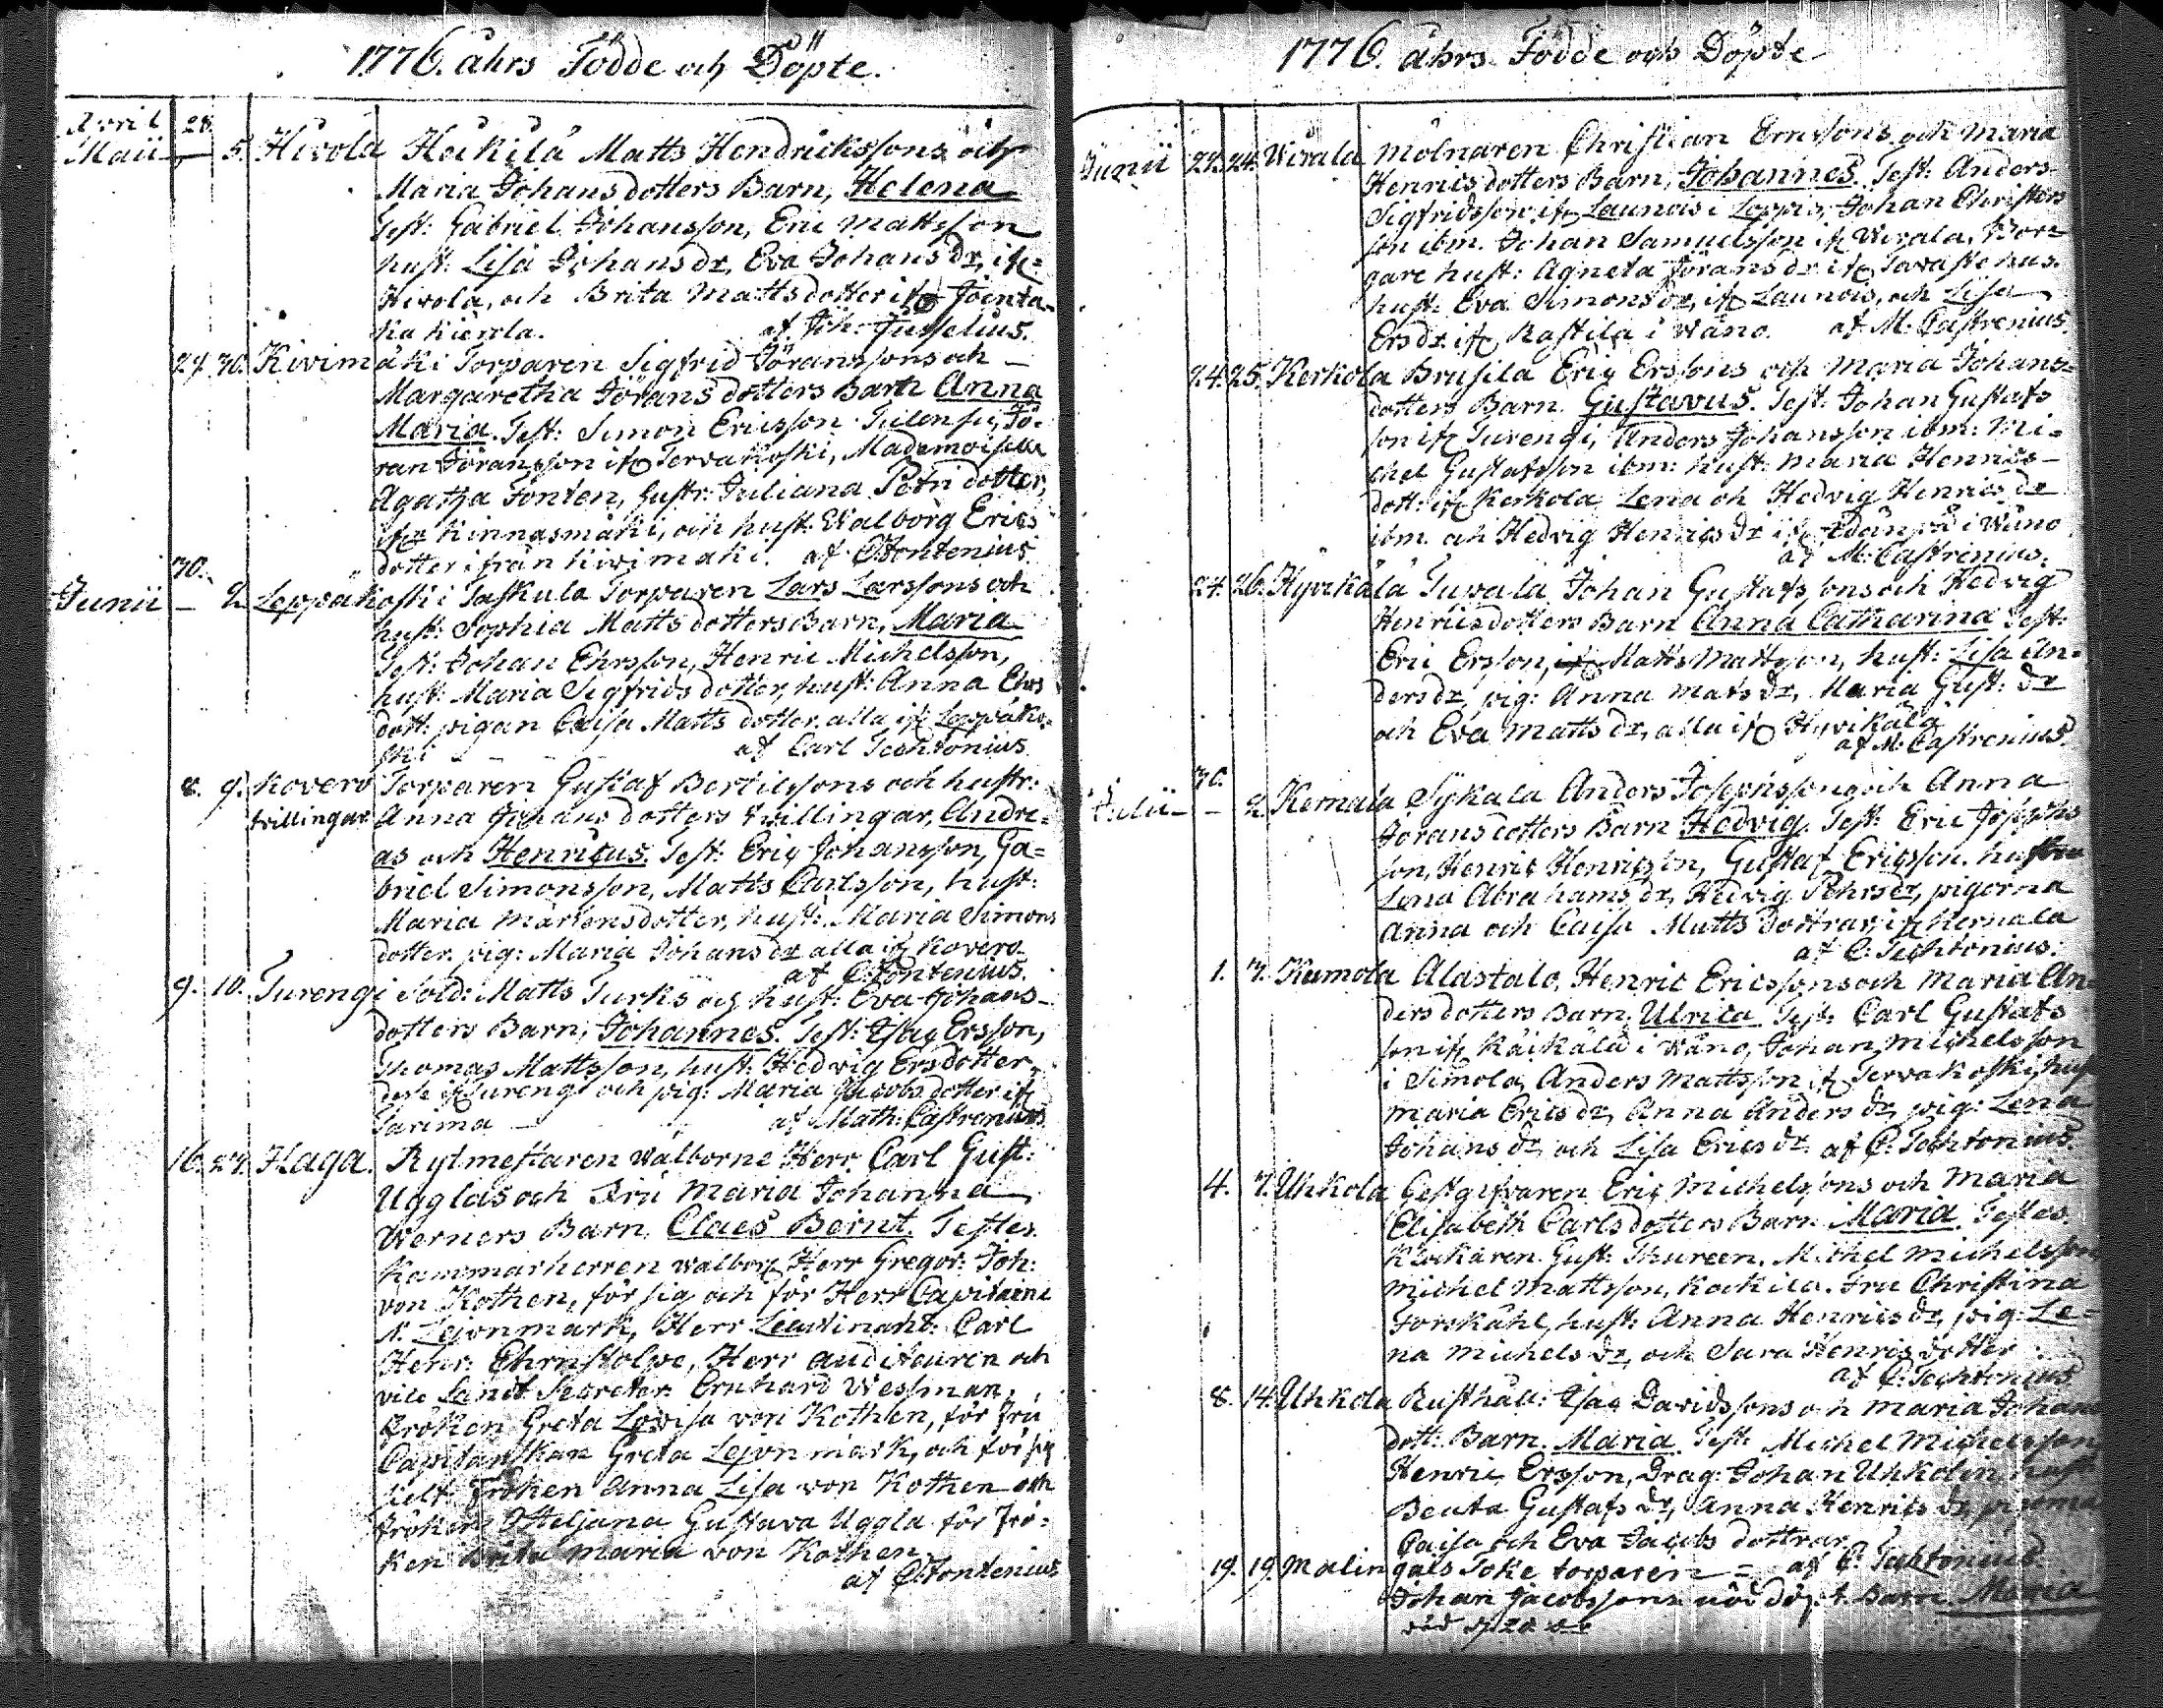 1776. åhrs Födde och Döpte.
April 28.
Maii — 5. Hivola Heikilä Matts Hendrickssons och
Maria Johans dotters Barn, Helena
Test: Gabriel Johansson, Eric Mattsson
hust: Lisa Johans dr, Eva Johans dr, ifr
Hivola, och Brita Matts dotter ifr Jointa-
ka Kierola. af Joh: Juselius.
27. 30. Kivimäki Torparen Sigfrid Jöranssons och
Margaretha Jörans dotters Barn Anna
Maria. Test: Simon Ericsson Tulensu, Jö-
ran Jöransson ifr Tervakoski, Mademoiselle
Agatha Fonten, hustr: Juliana Petri dotter,
ifr Kinnasmäki, och hust: Walborg Erics
dotter ifrån Kivimäki. af C. Fontenius.
30.
Junii — 2. Leppäkoski Taskula Torparen Lars Larssons och
hust: Sophia Matts dotters Barn, Maria
Test: Johan Ehrsson, Henric Michelsson,
hust: Maria Sigfrids dotter, hust: Anna Ehrs
dott: pigan Caisa Matts dotter alla ifr Leppäko-
ski - - - af Carl Techtonius
8. 9. Kovero Torparen Gustaf Bertilssons och hustr:
tvillingar Anna Johans dotters tvillingar, Andre-
as och Henricus. Test: Eriq Johansson, Ga=
briel Simonsson, Matts Carlsson, hust:
Maria Mårtens dotter, hust: Maria Simons
dotter. pig: Maria Johans dr alla ifr Kovero
af C. Fontenius.
9. 10. Turengi Sold: Matts Turks och hust: Eva Johans-
dotters Barn, Johannes. Test: Isaq Ersson,
Thomas Mattsson, hust: Hedvig Ers dotter,
desse ifr Turengi och pig: Maria Jacobs dotter ifr
Tarima — af Math: Castrenius
16. 27. Haga. Rytmestaren Wälborne Herr Carl Gust:
Ugglas och Fru Maria Johanna
Werners Barn, Claes Bernt. Testes
Kammarherren Wälborn Herr Gregor: Joh:
von Kothen, för sig och för Herr Capitaine
N. Lejonmark, Herr Lieutinant: Carl
Henr: Ehrnstolpe, Herr auditeuren och
vice Landt Secreter: Ernhard Wessman,
fröken Greta Lovisa von Kothen, för Fru
Capitanskan Greta Lejonmark, och för sig
sielf: Fröken Anna Lisa von Kothen och
fröken Otteljana Gustava Uggla för Frö-
ken Brita Maria von Kothen.
af C. Fontenius
1776. åhrs Födde och Döpte
Junii 22. 24. Wirala Mölnaren Christian Ernssons och Maria
Henricsdotters Barn, Johannes. Test: Anders
Sigfridsson ifr Launois i Loppis, Johan Christers
son ibm. Johan Samuelsson ifr Wirala, Bor=
gare hust: Agneta Jörans dr ifr Tavastehus.
hust: Eva Simons dr, ifr Launois, och Lisa
Ers dr ifr Rastila i Wåno. af M. Castrenius
24. 25. Kerkola Brusila Eriq Erssons och Maria Johans=
dotters Barn. Gustavus. Test: Johan Gustafs
son ifr Turengi, Anders Johansson ibm: Mi=
chel Gustafsson ibm: hust: Maria Henrics-
dott: ifr Kerkola, Lena och Hedvig Henrics dr
ibm. och Hedvig Henrics dr ifr i Wåno
af M: Castrenius.
24. 26. Hyvikälä Tuvala Johan Gustafssons och Hedvig
Henricsdotters Barn Anna Catharina Test:
Eric Ersson, Matts Mattsson, hust: Lisa An-
ders dr, pig: Anna Mats dr, Maria Gust: dr
och Eva Matts dr, alla ifr Hyvikälä
af M: Castrenius.
30.
Julii — 2. Kernala Sykala Anders Josephssons och Anna
Jörans dotters Barn Hedvig. Test: Eric Josephs
son, Henric Henricsson, Gustaf Ericsson. hustru
Lena Abrahams dr, Hedvig Pehrs dr, pigorna
Anna och Caisa Matts dottrar, ifr Kernala
af C: Techtonius.
1. 7. Kumola Alastalo, Henric Ericssons och Maria An-
ders dotters Barn, Ulrica Test: Carl Gustafs
son ifr Käikälä i Wåno, Johan Michelsson
i Simola, Anders Mattsson ifr Tervakoski, hust
Maria Erics dr, Anna Anders dr, pig: Lena
Johans dr, och Lisa Erics dr. af C. Techtonius.
4. 7. Uhkola Gestgifvaren Eriq Michelssons och Maria
Elisabeth Carls dotters Barn Maria. Testes
Klockaren Gust: Thureen, Michel Michelsson
Michel Mattsson, Kackila. Fru Christina
Forskåhl, hust: Anna Henrics dr, pig: Le=
na Michels dr, och Sara Henrics dotter
af C. Techtonius
8. 14. Uhkola Rusthåll: Isaq Davidssons och Maria Johans
dott: Barn. Maria. Test: Michel Michelsson
Henric Ersson, Drag: Johan Uhkolin, hust
Beata Gustafs dr, Anna Henrics dr, pigorna
Caisa och Eva Jacobs dottrar
19. 19. Malingais Toke torparen = af C. Techtonius.
Johan Jacobssons nöddöpt Barn. Maria